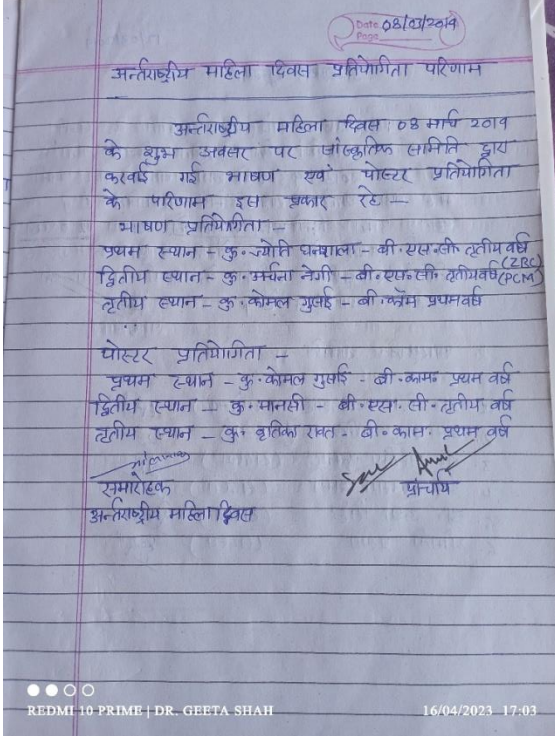 Date 08/03/2019
Page
अर्न्तराष्ट्रीय महिला दिवस प्रतियोगिता परिणाम
अर्न्तराष्ट्रीय महिला दिवस 08 मार्च 2019
के शुभ अवसर पर सांस्कृतिक समिति द्वारा
करवाई गई भाषण एवं पोस्टर प्रतियोगिता
के परिणाम इस प्रकार रहे —
भाषण प्रतियोगिता —
प्रथम स्थान - कु. ज्योति घनशाला - बी.एस.सी. तृतीय वर्ष (ZBC)
द्वितीय स्थान - कु. अर्चना नेगी - बी.एस.सी. तृतीय वर्ष (PCM)
तृतीय स्थान - कु. कोमल गुसांई - बी.कॉम प्रथम वर्ष
पोस्टर प्रतियोगिता —
प्रथम स्थान - कु. कोमल गुसांई - बी.काम. प्रथम वर्ष
द्वितीय स्थान - कु. मानसी - बी.एस.सी. तृतीय वर्ष
तृतीय स्थान - कु. कृतिका रावत - बी.काम. प्रथम वर्ष
समारोहक प्राचार्य
अर्न्तराष्ट्रीय महिला दिवस
REDMI 10 PRIME | DR. GEETA SHAH 16/04/2023 17:03